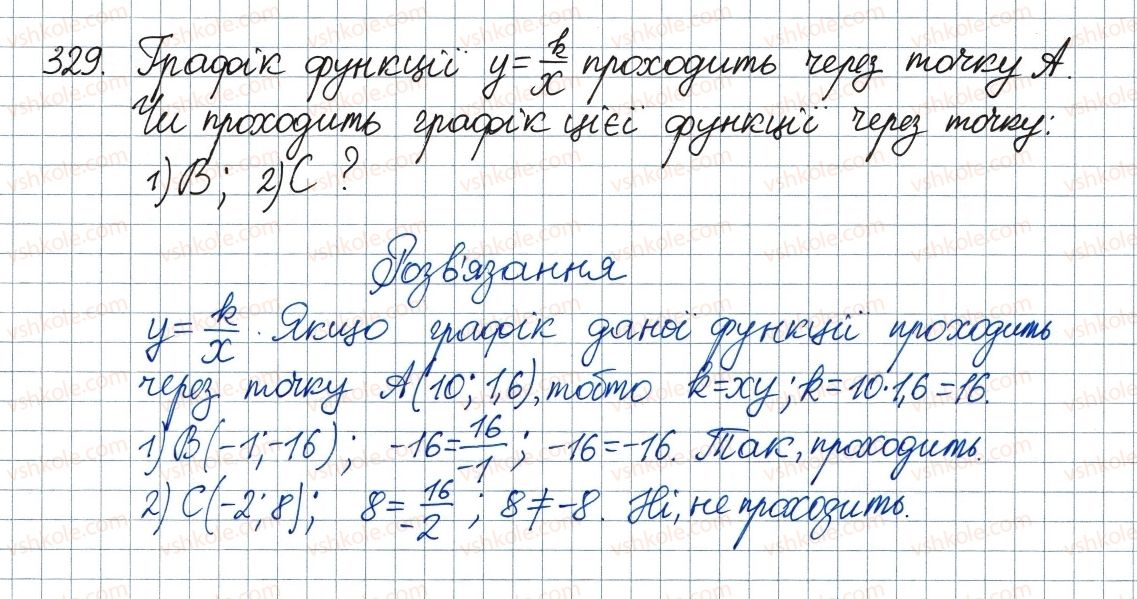 329. Графік функції y = k/x проходить через точку А.
Чи проходить графік цієї функції через точку:
1) В; 2) С ?
Розв'язання
y = k/x. Якщо графік даної функції проходить
через точку А(10; 1,6), тобто k=xy; k=10·1,6=16.
1) В(-1;-16); -16 = 16/-1; -16=-16. Так, проходить.
2) С(-2;8); 8 = 16/-2; 8≠-8. Ні, не проходить.